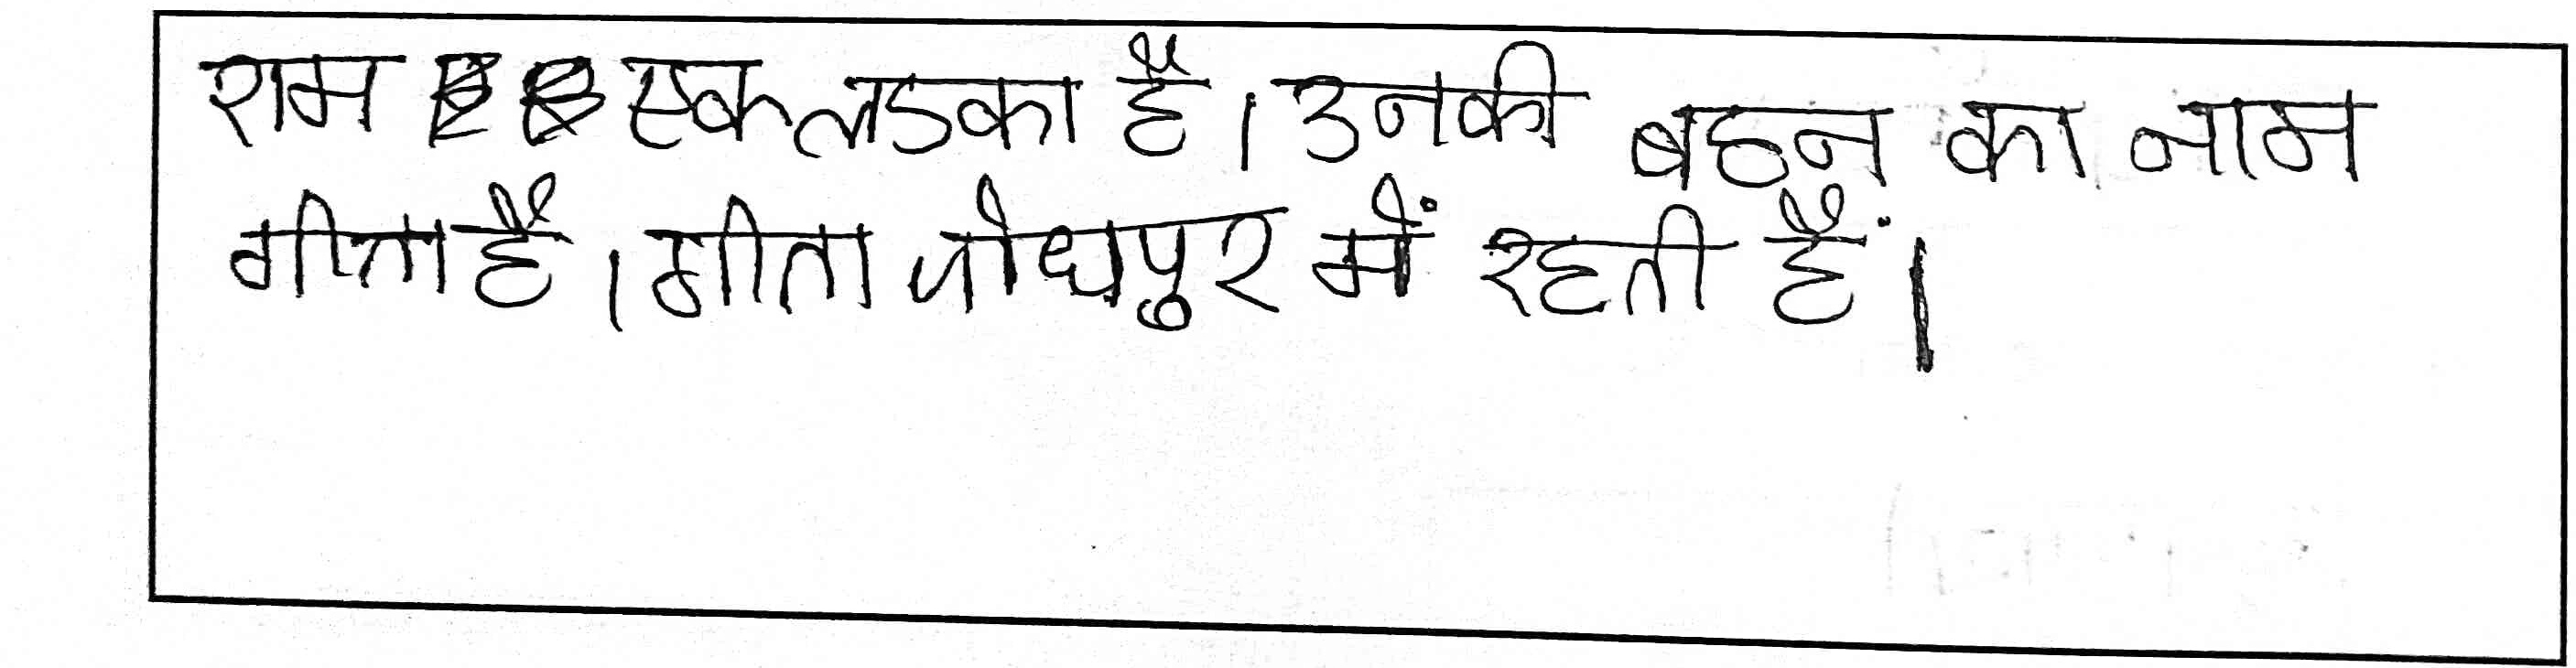 राम एक लडका है। उनकी बहन का नाम
गीता है। गीता जोधपुर में रहती हैं।